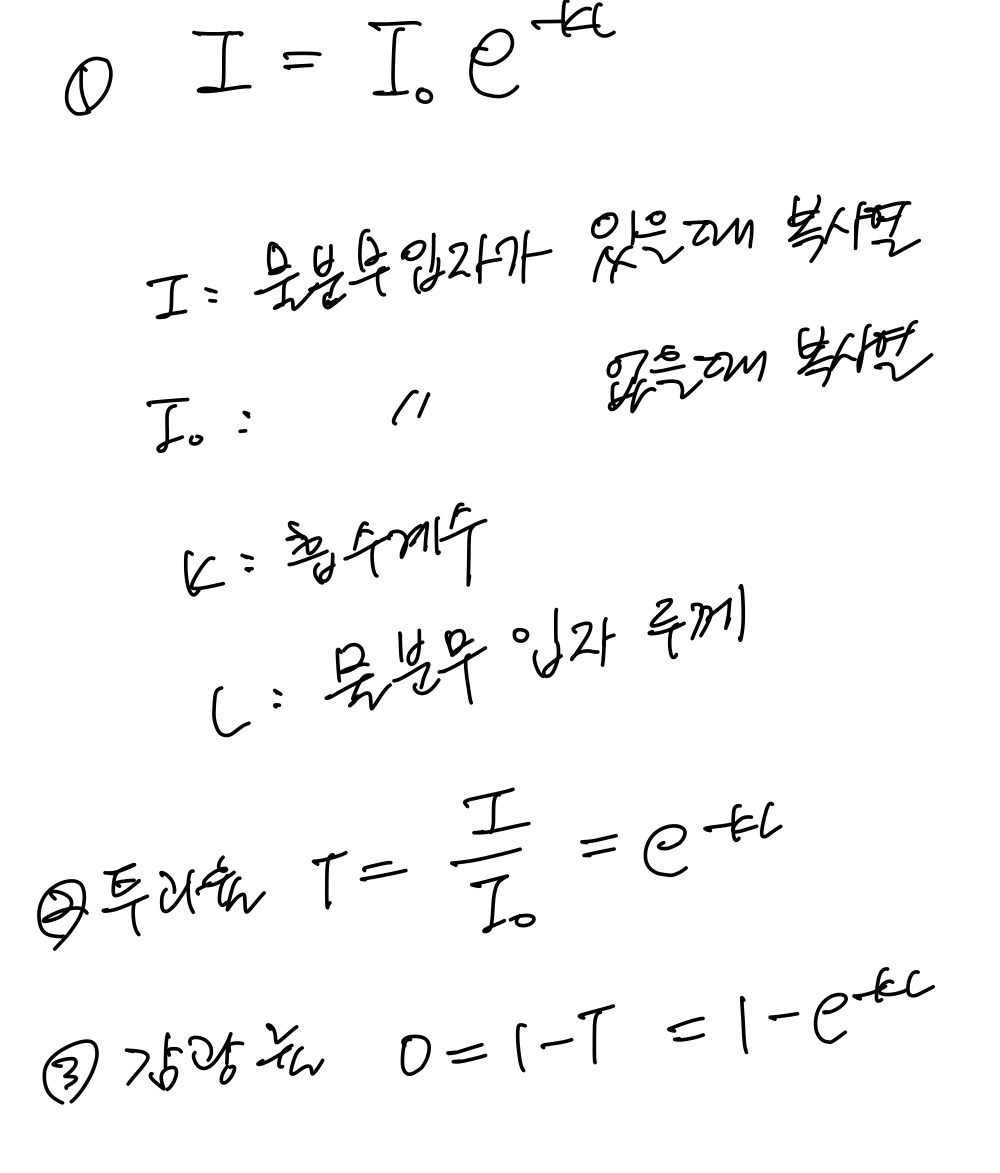 ① I = I₀ e^-KL
I : 물분무입자가 있을때 복사열
I₀ : 〃 없을때 복사열
K : 흡수계수
L : 물분무 입자 두께
② 투과율 T = I/I₀ = e^-KL
③ 감광율 O = 1-T = 1-e^-KL